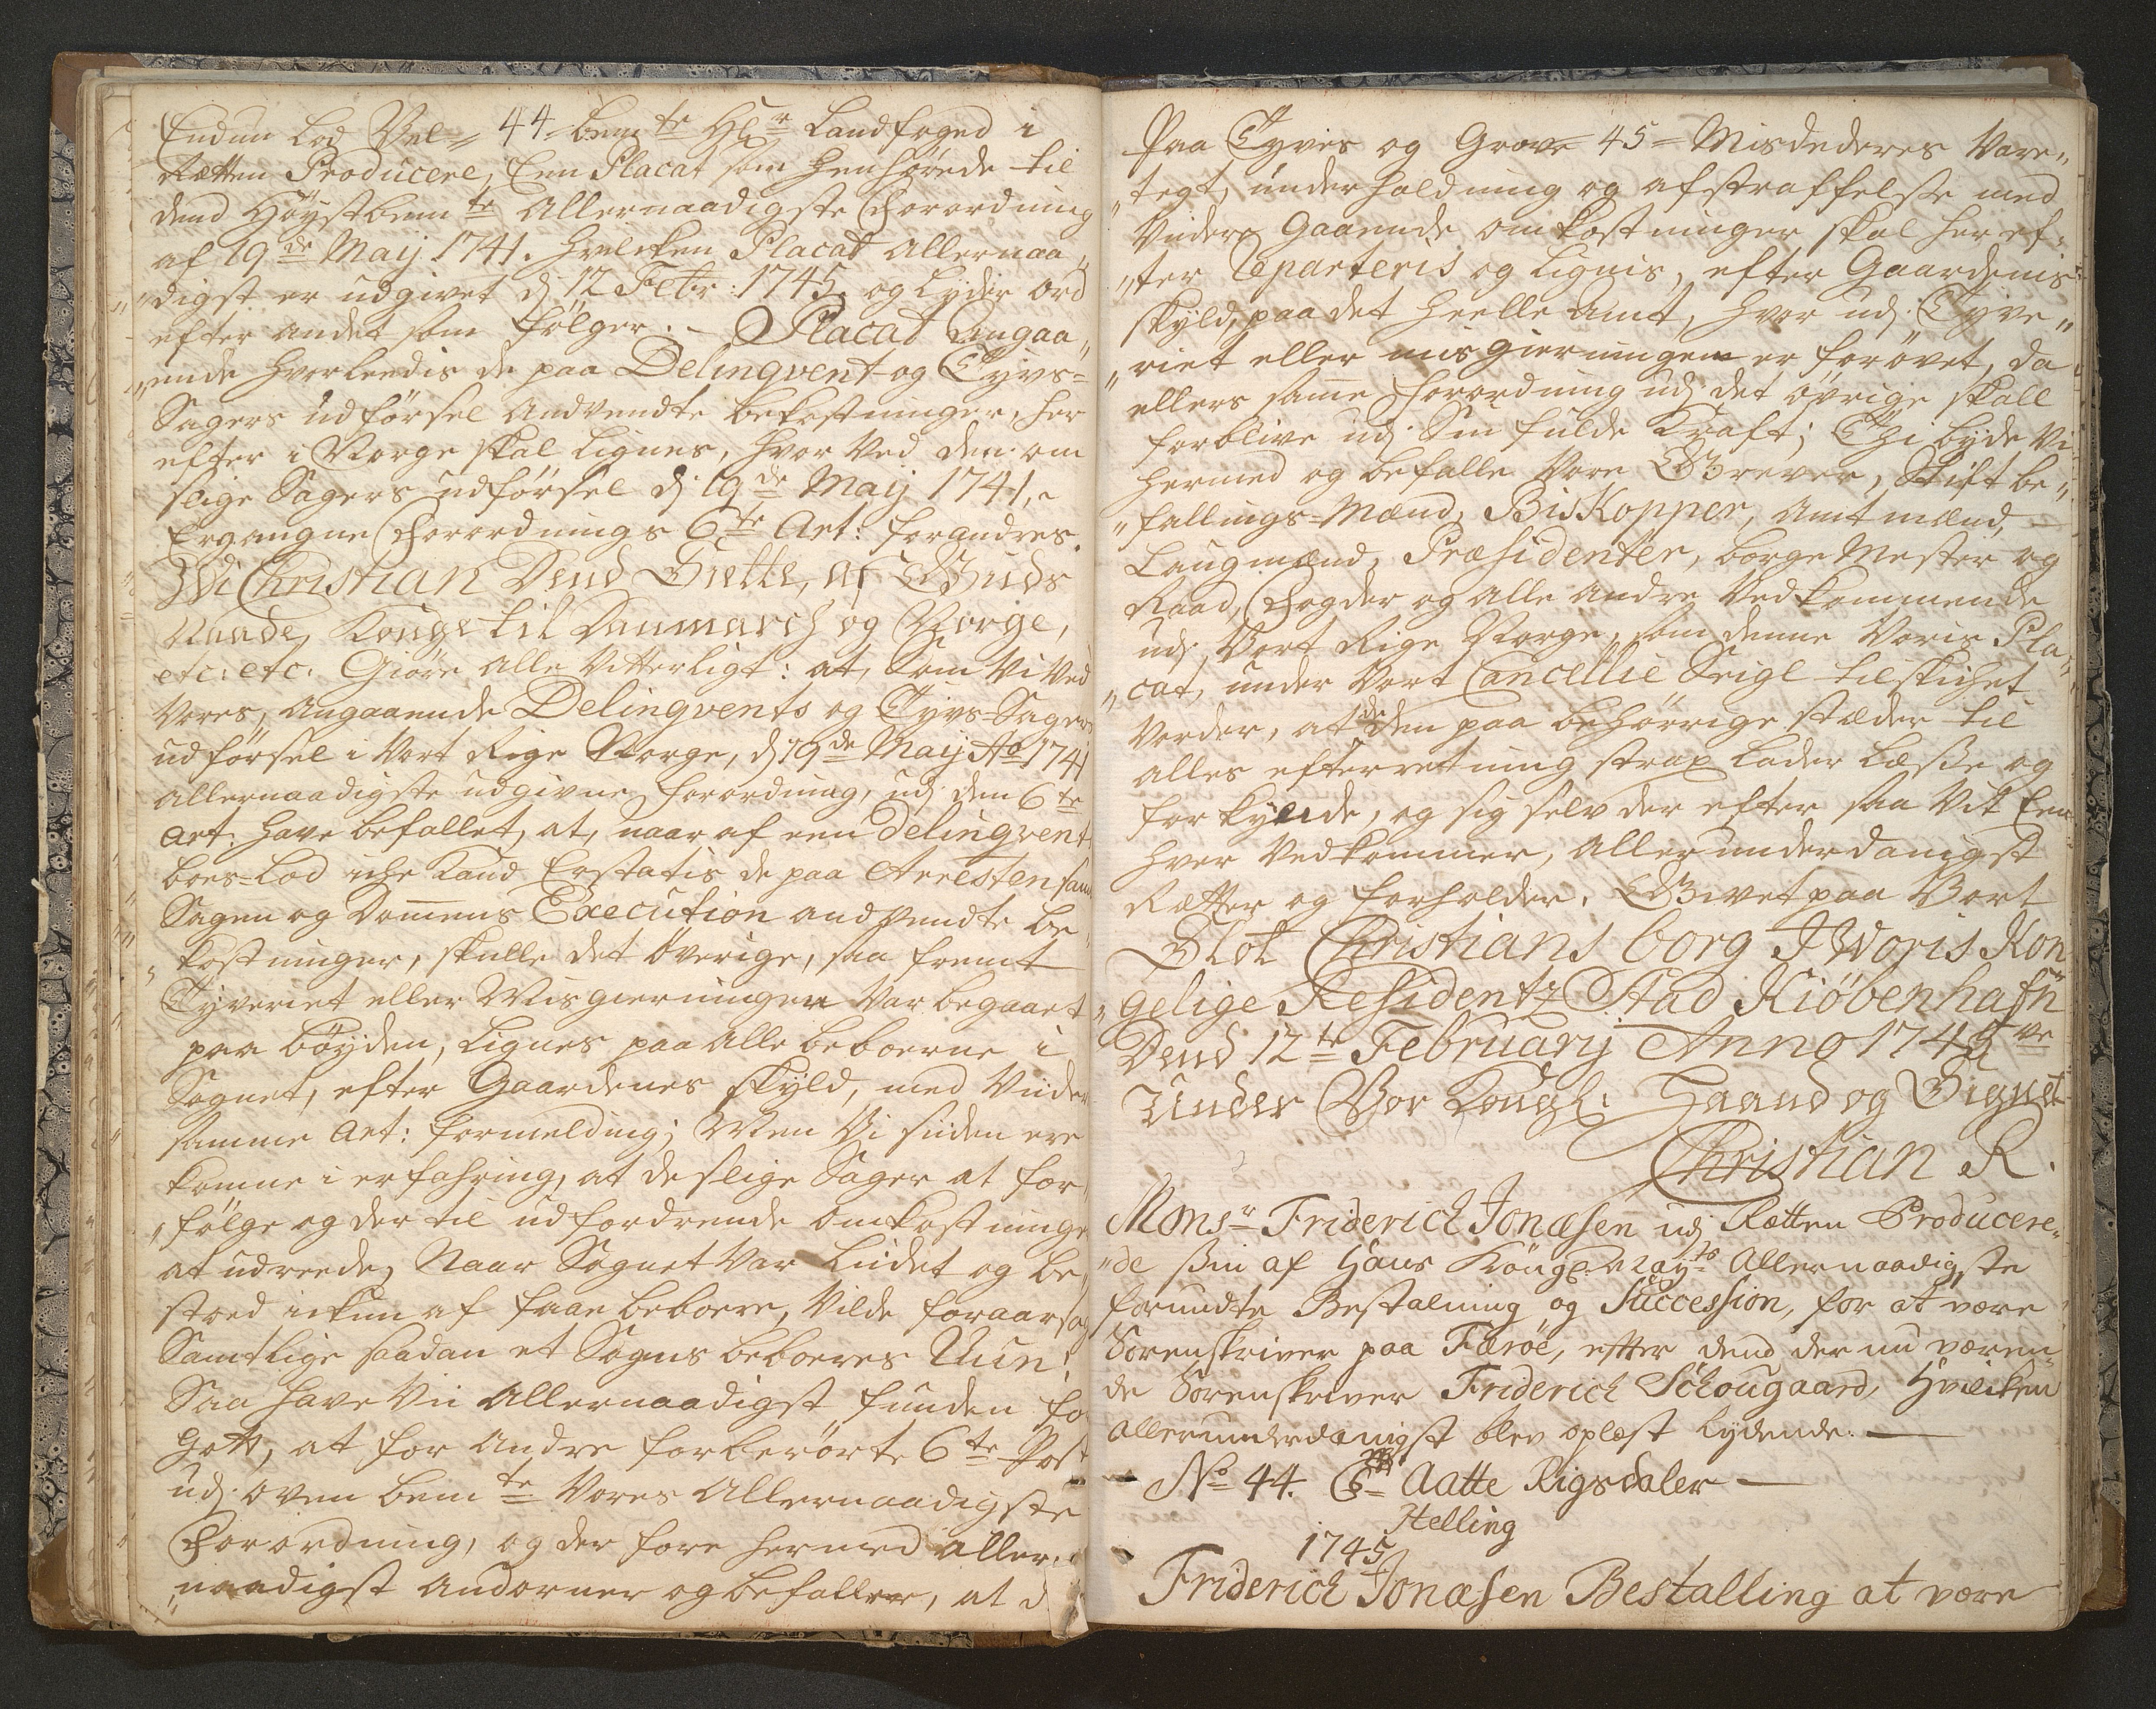 Endnu lod Vel= 44. bemte Hr Landfoged i
Rætten Producere, Een Placat som henhørede til
dend Høystbemte Allernaadigste Forordning
af 19de Maij 1741. hvilcken Placat Allernaa„
„digst er udgivet d: 12 Febr: 1745. og Lyder ord
efter andet som følger. – Placat Angaa„
„ende hvorledis de paa Delinqvent- og Tyvs=
Sagers udførsel Andvendte bekostninger, her
efter i Norge skal Lignes, hvor Ved den om
slige Sagers udførsel d: 19de Maij 1741,
Ergangne Forordnings 6te Art: forandres.
Wi Christian Dend Siette, af Guds
Naade, Konge til Danmarch og Norge,
etc: etc: Giøre Alle Vitterligt: at, Som Vi Ved
Vores, Angaaende Delinqvents og Tyvs=Sagers
udførsel i Vort Rige Norge, d: 19de Maij Ao 1741
Allernaadigste udgivne Forordning, udj den 6te
Art: have befallet, at, naar af een Delinqvents
boes-Lod iche Kand Erstatis de paa Arresten samt
Sagen og Domens Execution andvendte be„
„kostninger, skulle det øverige, saa fremt
Tyveriet eller Misgierningen Var begaaet
paa bøyden, Lignes paa Alle beboerne i
Sognet, efter Gaardenes skyld, med Viider
samme Art: formelding; Men Vi siiden ere
komne i erfahring, at de slige Sager at for„
„følge og der til udfordrende omkostninger
at udreede, Naar Sognet Var Lidet og be„
stoed ickun af faae beboere, Vilde foraarsage
Samtlige saadan et Sogns beboeres Ruin;
Saa have Vii Allernaadigst funden for
Gott, at for andre forberørte 6te Post
udj oven bemte Vores Allernaadigste
Forordning, og der fore hermed aller„
„naadigst Anordner og befaller, at d
Paa Tyvis og Grove 45= Misdederes Vare„
„tegt, underholdning og afstraffelse med
Videre Gaaende omkostninger skal her ef„
„ter reparteris og Lignis, efter Gaardenis
skyld, paa det heelle Amt, hvor udj Tyve„
„riet eller misgierningen er forøvet, da
ellers same Forordning udj det øvrige skall
forblive udj Sin fulde Kraft; Thi byde Vi
hermed og befalle Vore Grever, Stift be„
„fallings=Mænd, Biskopper, Amtmænd,
Laugmænd, Præsidenter, borge Mester og
Raad, Fogder og Alle Andre Vedkommende
udj Vort Rige Norge, som denne Voris Pla„
„cat, under Vort Cancellie Seigl tilskichet
Vorder, at de den paa behørrige stæder til
alles efterretning strax Lader Læsse og
forkynde, og sig selv der efter saa Vit Een
hver Vedkommer, Allerunderdanigst
Retter og forholder. Givet paa Vort
Slot Christians borg I Woris Kon„
„gelige Residentz Stad Kiøbenhafn
Dend 12te Februarij Anno 1745ve
Under Vor Kongl: Haand og Signet
Christian R.
Monsr Friderich Jonæsen udj Rætten Producere„
„de sin af Hans Kongl: Mayts Allernaadigste
forundte Bestalning og Succession, for at være
Sorenskriver paa Færöe, efter dend der nu væren„
de Sorenskriver Friderich Schougaard, Hvilcken
allerunderdanigst blev oplæst lydende. —
No 44. Aatte Rigsdaler —
Helling
1745
Friderich Jonæsen Bestalling at være